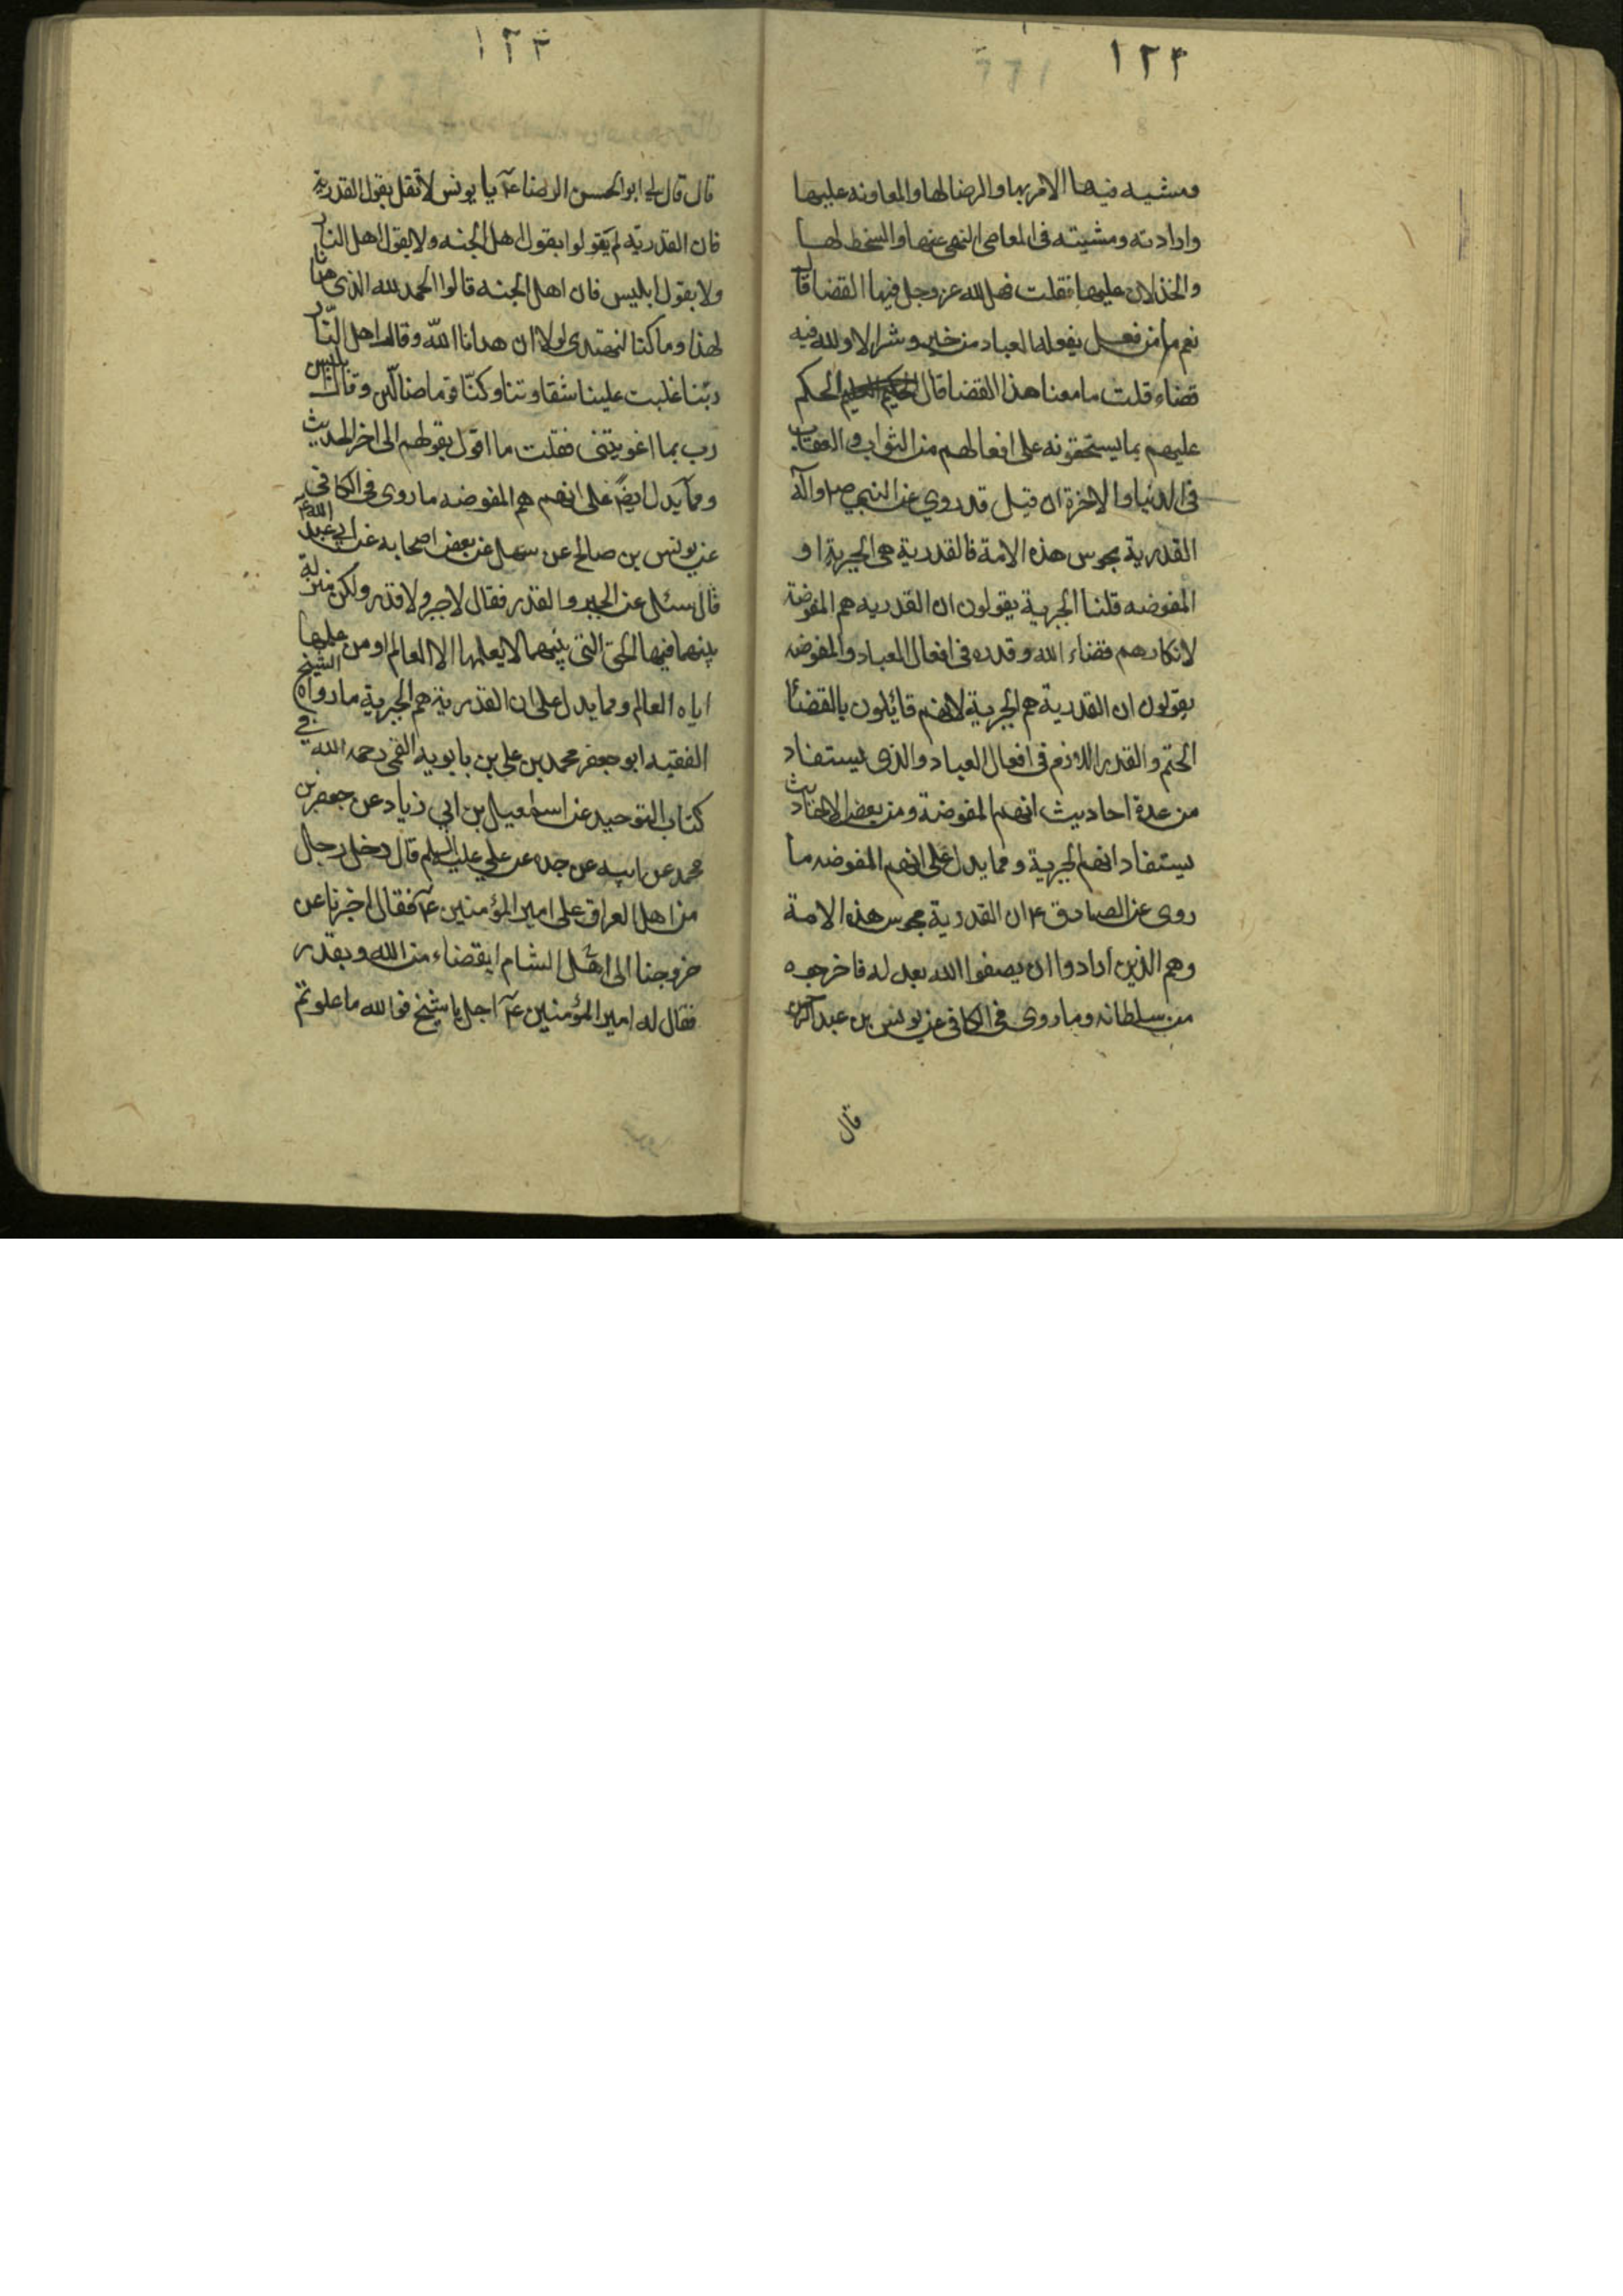 ١٢٢
ومشيه فيها الامر بها والرضا لها والمعاونه عليها
وارادته ومشيته فى المعاصى النهى عنها والسخط لها
والخذلان عليها فقلت فهل لله عز وجل فيها القضا قال
نعم ما من فعل يفعله العباد من خير وشر الا ولله فيه
قضاء قلت ما معنا هذا القضا قال الحكم
عليهم بما يستحقونه على افعالهم من الثواب والعقاب
فى الدنيا والاخرة ان قيل قد روي عن النبي ص واله
القدرية مجوس هذه الامة فالقدرية هى الجبرية او
المفوضه قلنا الجبرية يقولون ان القدريه هم المفوضة
لانكارهم قضاء الله وقدره فى افعال العباد والمفوضه
يقولون ان القدرية هم الجبرية لانهم قائلون بالقضا
الحتم والقدر اللازم فى افعال العباد والذى يستفاد
من عدة احاديث انهم المفوضة ومن بعض الاحاديث
يستفاد انهم الجبرية ومما يدل على انهم المفوضه ما
روى عن الصادق ع ان القدرية مجوس هذه الامة
وهم الذين ارادوا ان يصفوا الله بعدله فاخرجوه
من سلطانه وما روى فى الكافى عن يونس بن عبد الرحمن
قال
١٢٣
قال قال لى ابو الحسن الرضا ع يا يونس لا تقل بقول القدرية
فان القدريّه لم يقولوا بقول اهل الجنه ولا بقول اهل النار
ولا بقول ابليس فان اهل الجنه قالوا الحمد لله الذى هدانا
لهذا وما كنا لنهتدى لولا ان هدانا الله وقال اهل النّار
ربّنا غلبت علينا شقاوتنا وكنّا قوما ضالّين وقال ابليس
رب بما اغويتنى فقلت ما اقول بقولهم الى اخر الحديث
ومما يدل ايضا على انهم هم المفوضه ما روى فى الكافى
عن يونس بن صالح عن سهل عن بعض اصحابه عن ابي عبد الله ع
قال سئل عن الجبر والقدر فقال لا جبر ولا قدر ولكن منزلة
بينهما فيها الحق التى بينهما لا يعلمها الا العالم او من علمها
اياه العالم ومما يدل على ان القدرية هم الجبرية ما رواه الشيخ
الفقيه ابو جعفر محمد بن على بن بابويه القمى رحمه الله في
كتاب التوحيد عن اسمعيل بن ابي زياد عن جعفر بن
محمد عن ابيه عن جده عن علي عليه السلم قال دخل رجال
من اهل العراق على امير المؤمنين ع فقال اخبرنا عن
خروجنا الى اهل الشام ابقضاء من الله وبقدر
فقال له امير المؤمنين ع اجل يا شيخ فو الله ما علوتم